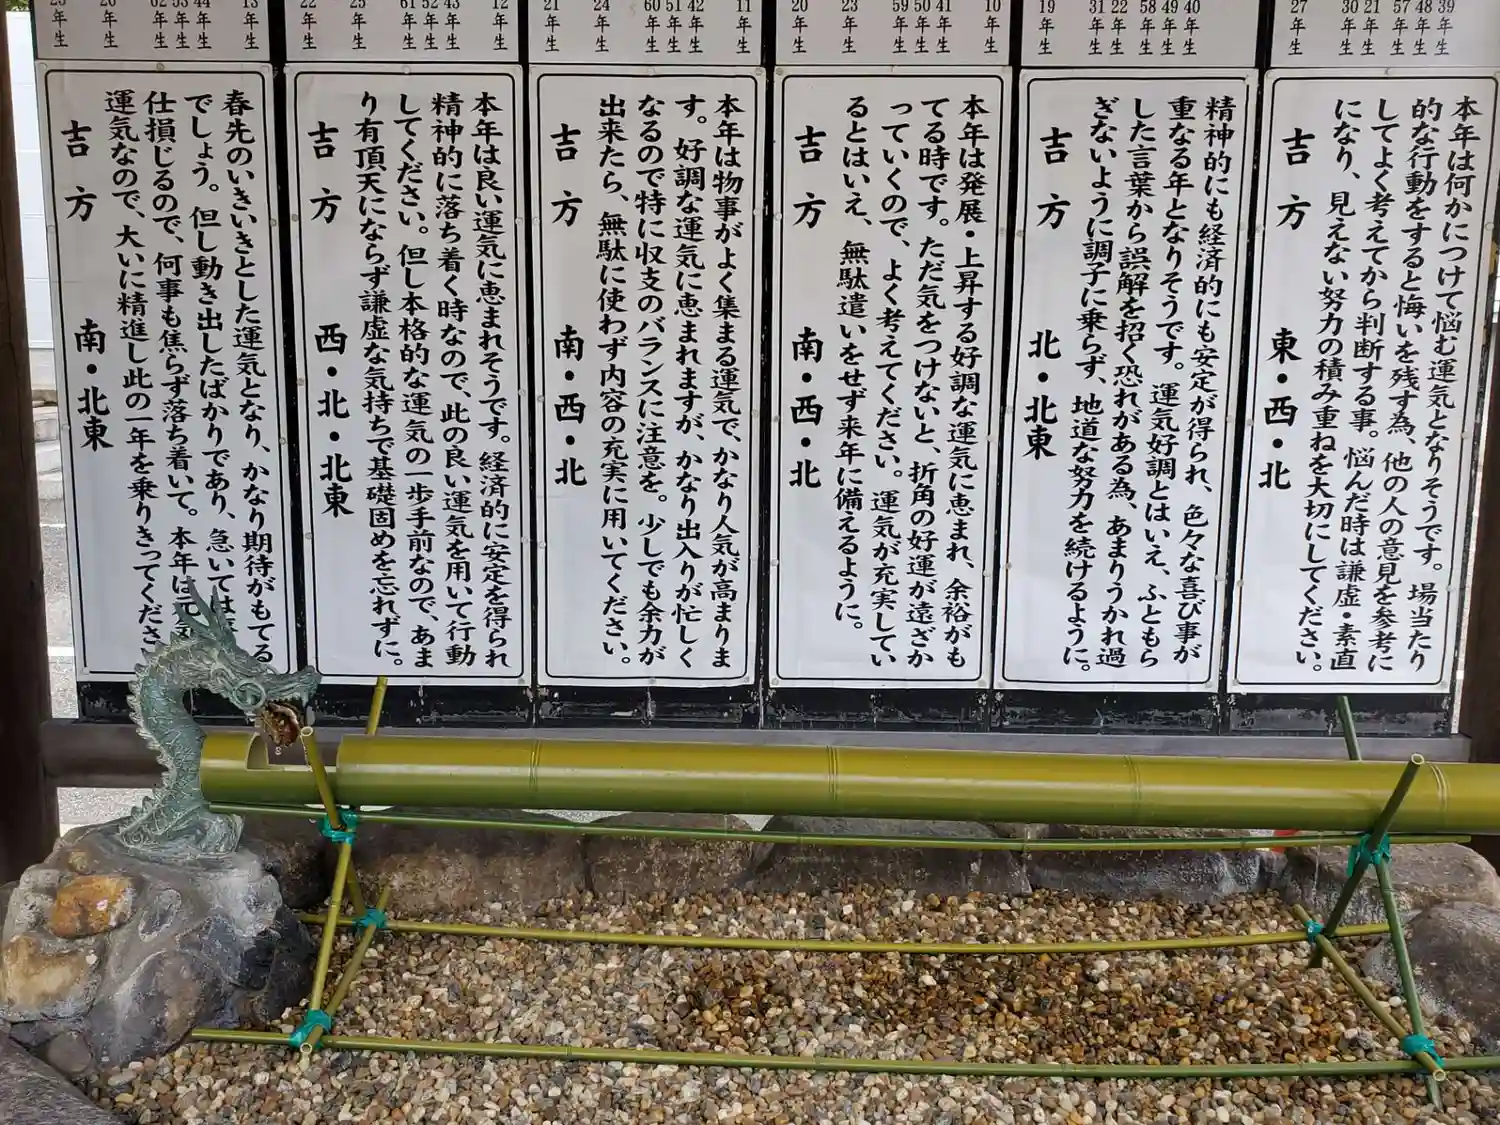 39年生
48年生
57年生
21年生
30年生
27年生
本年は何かにつけて悩む運気となりそうです。場当たり
的な行動をすると悔いを残す為、他の人の意見を参考に
してよく考えてから判断する事。悩んだ時は謙虚・素直
になり、見えない努力の積み重ねを大切にしてください。
吉方 東・西・北
40年生
49年生
58年生
22年生
31年生
19年生
精神的にも経済的にも安定が得られ、色々な喜び事が
重なる年となりそうです。運気好調とはいえ、ふともら
した言葉から誤解を招く恐れがある為、あまりうかれ過
ぎないように調子に乗らず、地道な努力を続けるように。
吉方 北・北東
10年生
41年生
50年生
59年生
23年生
20年生
本年は発展・上昇する好調な運気に恵まれ、余裕がも
てる時です。ただ気をつけないと、折角の好運が遠ざか
っていくので、よく考えてください。運気が充実してい
るとはいえ、無駄遣いをせず来年に備えるように。
吉方 南・西・北
11年生
42年生
51年生
60年生
24年生
21年生
本年は物事がよく集まる運気で、かなり人気が高まりま
す。好調な運気に恵まれますが、かなり出入りが忙しく
なるので特に収支のバランスに注意を。少しでも余力が
出来たら、無駄に使わず内容の充実に用いてください。
吉方 南・西・北
12年生
43年生
52年生
61年生
25年生
22年生
本年は良い運気に恵まれそうです。経済的に安定を得られ
精神的に落ち着く時なので、此の良い運気を用いて行動
してください。但し本格的な運気の一歩手前なので、あま
り有頂天にならず謙虚な気持ちで基礎固めを忘れずに。
吉方 西・北・北東
13年生
44年生
53年生
62年生
26年生
23年生
春先のいきいきとした運気となり、かなり期待がもてる
でしょう。但し動き出したばかりであり、急いては
仕損じるので、何事も焦らず落ち着いて。本年は元気
運気なので、大いに精進し此の一年を乗りきってくださ
吉方 南・北東